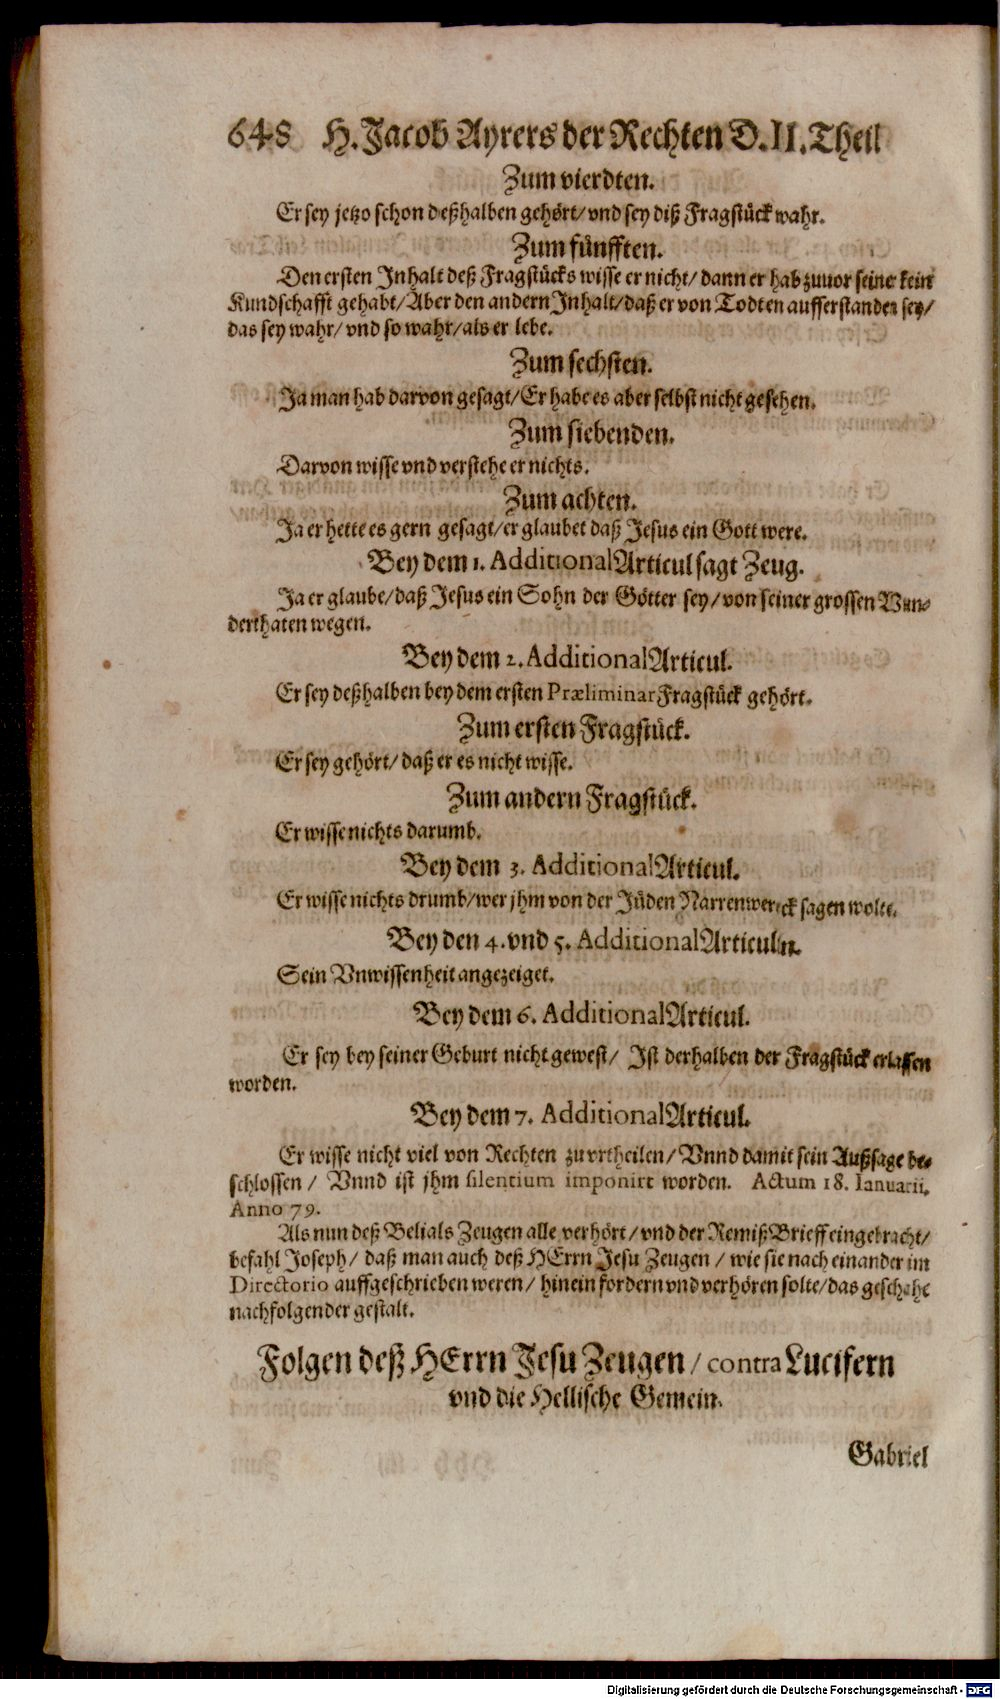 648 H. Jacob Ayrers der Rechten D. II. Theil
Zum vierdten.
Er sey jetzo schon deßhalben gehört/ vnd sey diß Fragstück wahr.
Zum fünfften.
Den ersten Inhalt deß Fragstücks wisse er nicht/ dann er hab zuuor seiner kein
Kundschafft gehabt/ Aber den andern Inhalt/ daß er von Todten aufferstanden sey/
das sey wahr/ vnd so wahr/ als er lebe.
Zum sechsten.
Ja man hab darvon gesagt/ Er habe es aber selbst nicht gesehen.
Zum siebenden.
Darvon wisse vnd verstehe er nichts.
Zum achten.
Ja er hette es gern gesagt/ er glaubet daß Jesus ein Gott were.
Bey dem 1. Additional Articul sagt Zeug.
Ja er glaube/ daß Jesus ein Sohn der Götter sey/ von seiner grossen Wun-
derthaten wegen.
Bey dem 2. Additional Articul.
Er sey deßhalben bey dem ersten Præliminar Fragstück gehört.
Zum ersten Fragstück.
Er sey gehört/ daß er es nicht wisse.
Zum andern Fragstück.
Er wisse nichts darumb.
Bey dem 3. Additional Articul.
Er wisse nichts drumb/ wer jhm von der Jüden Narrenwerck sagen wolte.
Bey den 4. vnd 5. Additional Articuln.
Sein Vnwissenheit angezeiget.
Bey dem 6. Additional Articul.
Er sey bey seiner Geburt nicht gewest/ Ist derhalben der Fragstück erlassen
worden.
Bey dem 7. Additional Articul.
Er wisse nicht viel von Rechten zu vrtheilen/ Vnnd damit sein Außsage be-
schlossen/ Vnnd ist jhm silentium imponirt worden. Actum 18. Ianuarii,
Anno 79.
Als nun deß Belials Zeugen alle verhört/ vnd der Remiß Brieff eingebracht/
befahl Joseph/ daß man auch deß HErrn Jesu Zeugen/ wie sie nach einander im
Directorio auffgeschrieben weren/ hinein fordern vnd verhören solte/ das geschehe
nachfolgender gestalt.
Folgen deß HErrn Jesu Zeugen/ contra Lucifern
vnd die Hellische Gemein.
Gabriel
Digitalisierung gefördert durch die Deutsche Forschungsgemeinschaft - DFG